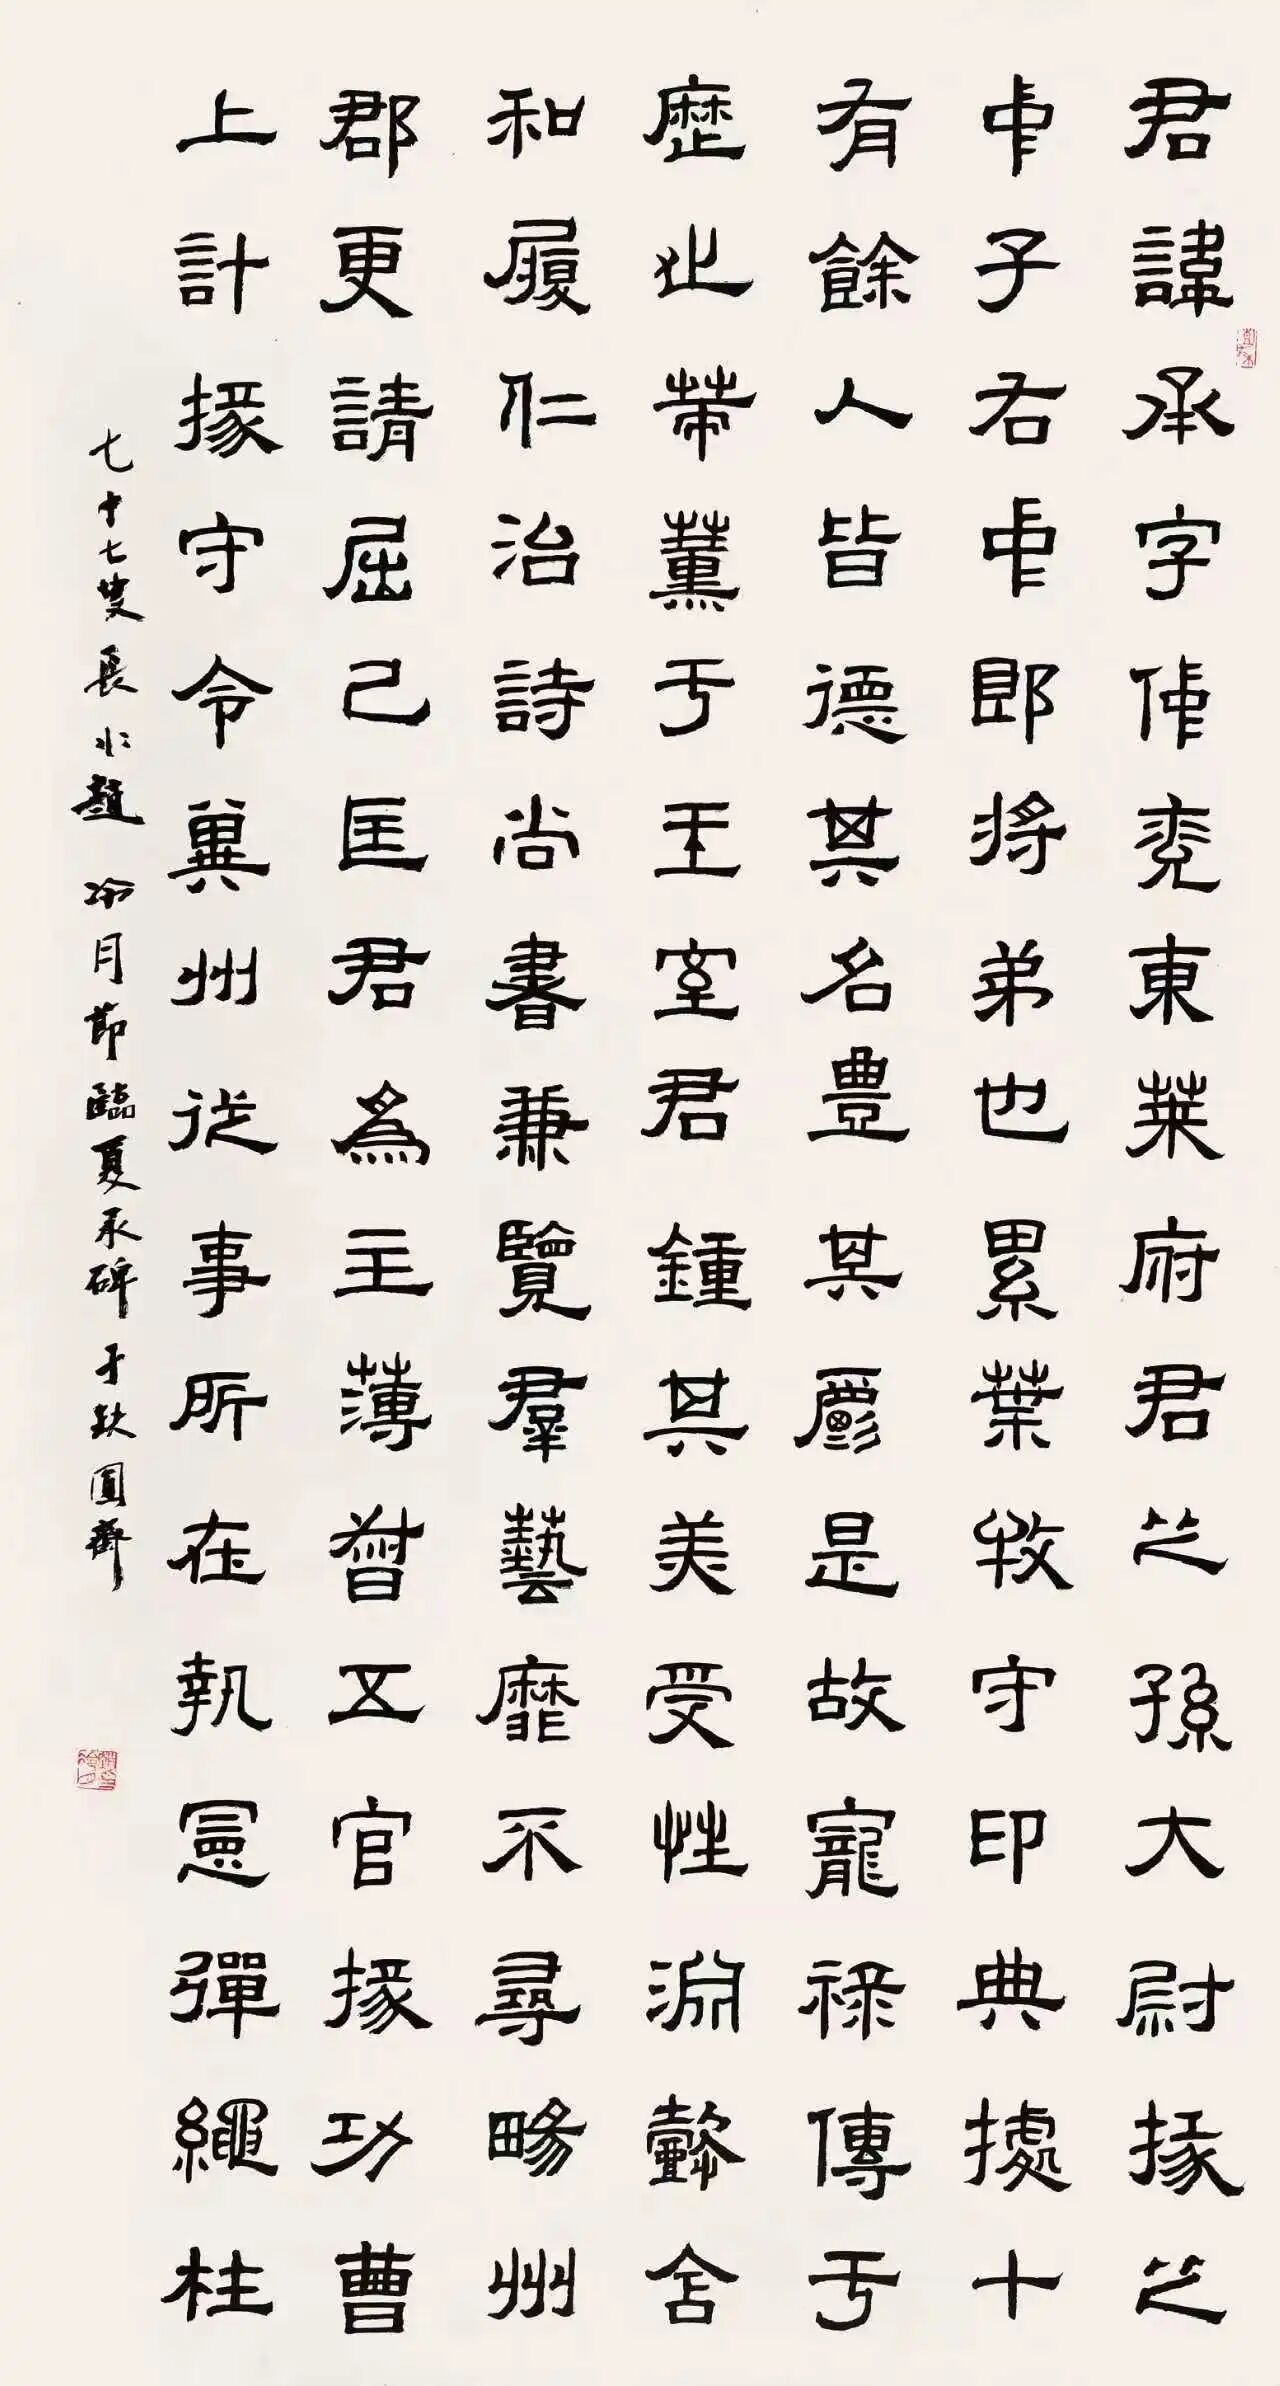 君諱承字仲兖東萊府君之孫大尉掾之
中子右中郎將弟也累葉牧守印典據十
有餘人皆德其名豊其爵是故寵祿傳于
歷世策薰于王室君鍾其美受性淵懿含
和履仁治詩尚書兼覽羣藝靡不尋暢州
郡更請屈己匡君為主薄督五官掾功曹
上計掾守令冀州從事所在執憲彈繩柱
七十七叟長水趙冷月節臨夏承碑于缺圓齋